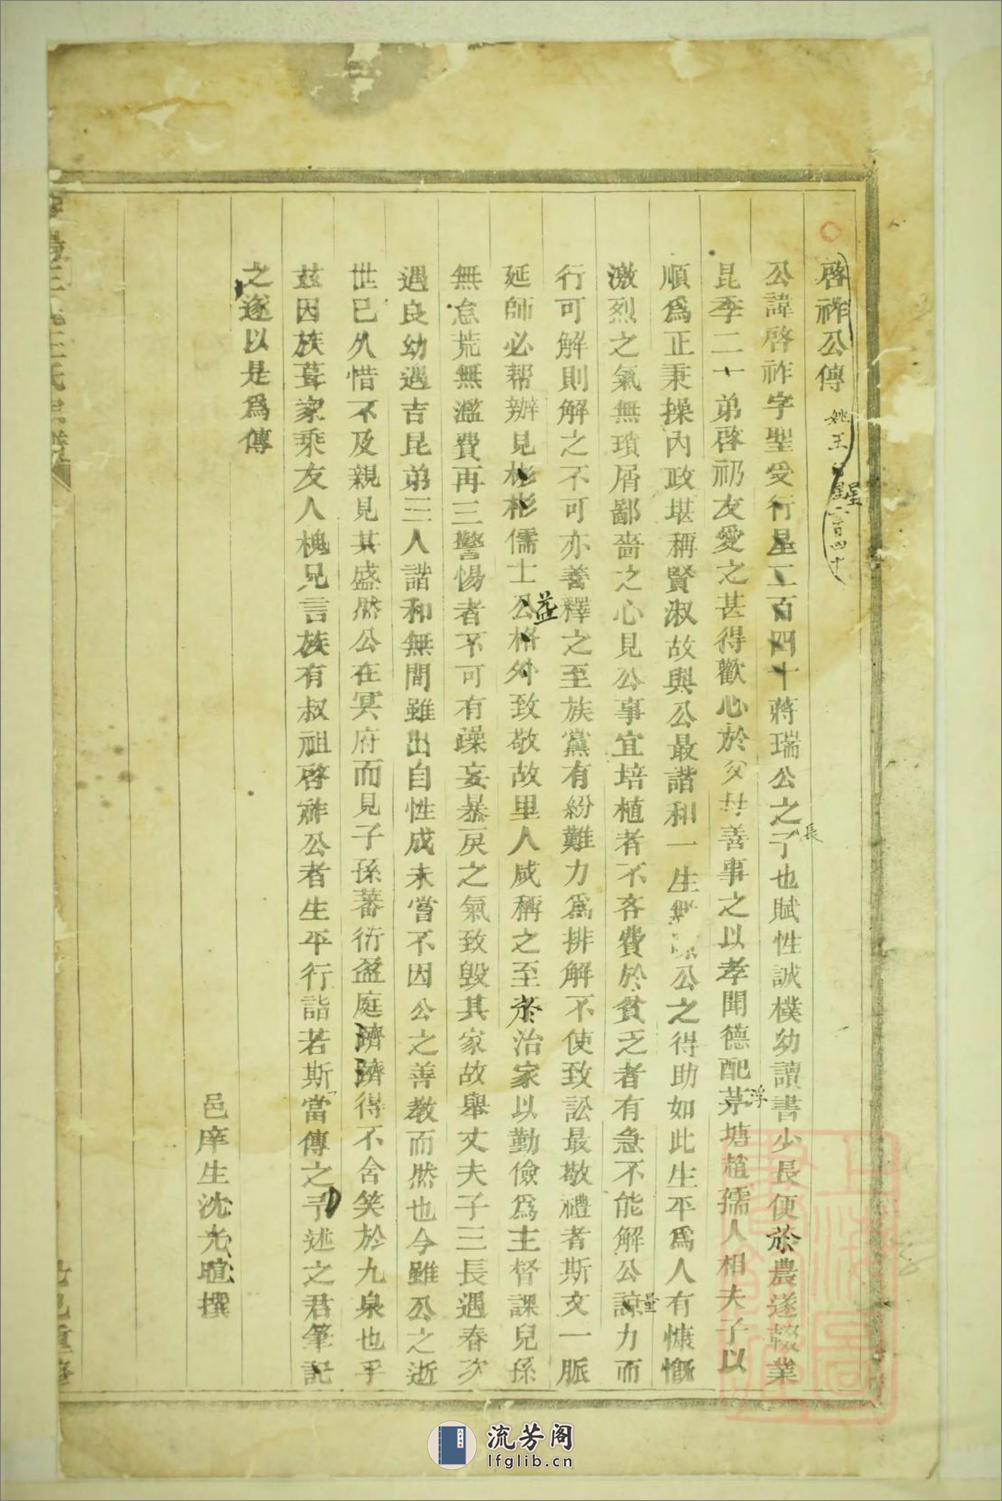 啓祚公傳 姚王 星二百四十
公諱啓祚字聖受行星二百四十蔣瑞公之子也賦性誠樸幼讀書少長便於農遂輟業
長
昆季二一弟啓礽友愛之甚得歡心於父母善事之以孝聞德配茅塘趙孺人相夫子以
浮
順爲正秉操內政堪稱賢淑故與公最諧和一生無 公之得助如此生平爲人有慷慨
激烈之氣無瑣屑鄙嗇之心見公事宜培植者不吝費於貧乏者有急不能解公諒力而
量
行可解則解之不可亦善釋之至族黨有紛難力爲排解不使致訟最敬禮者斯文一脈
延師必帮辦見彬彬儒士公格外致敬故里人咸稱之至於治家以勤儉爲主督課兒孫
益
無怠荒無濫費再三警惕者不可有躁妄暴戾之氣致毀其家故舉丈夫子三長遇春次
遇良幼遇吉昆弟三人諧和無間雖出自性成未嘗不因公之善教而然也今雖公之逝
世已久惜不及親見其盛然公在冥府而見子孫蕃衍盈庭濟濟得不含笑於九泉也乎
茲因族葺家乘友人槐兄言族有叔祖啓祚公者生平行詣若斯當傳之予述之君筆記
之遂以是爲傳
邑庠生沈光暄撰
王氏宗譜
乙巳重修
流芳阁
lfglib.cn